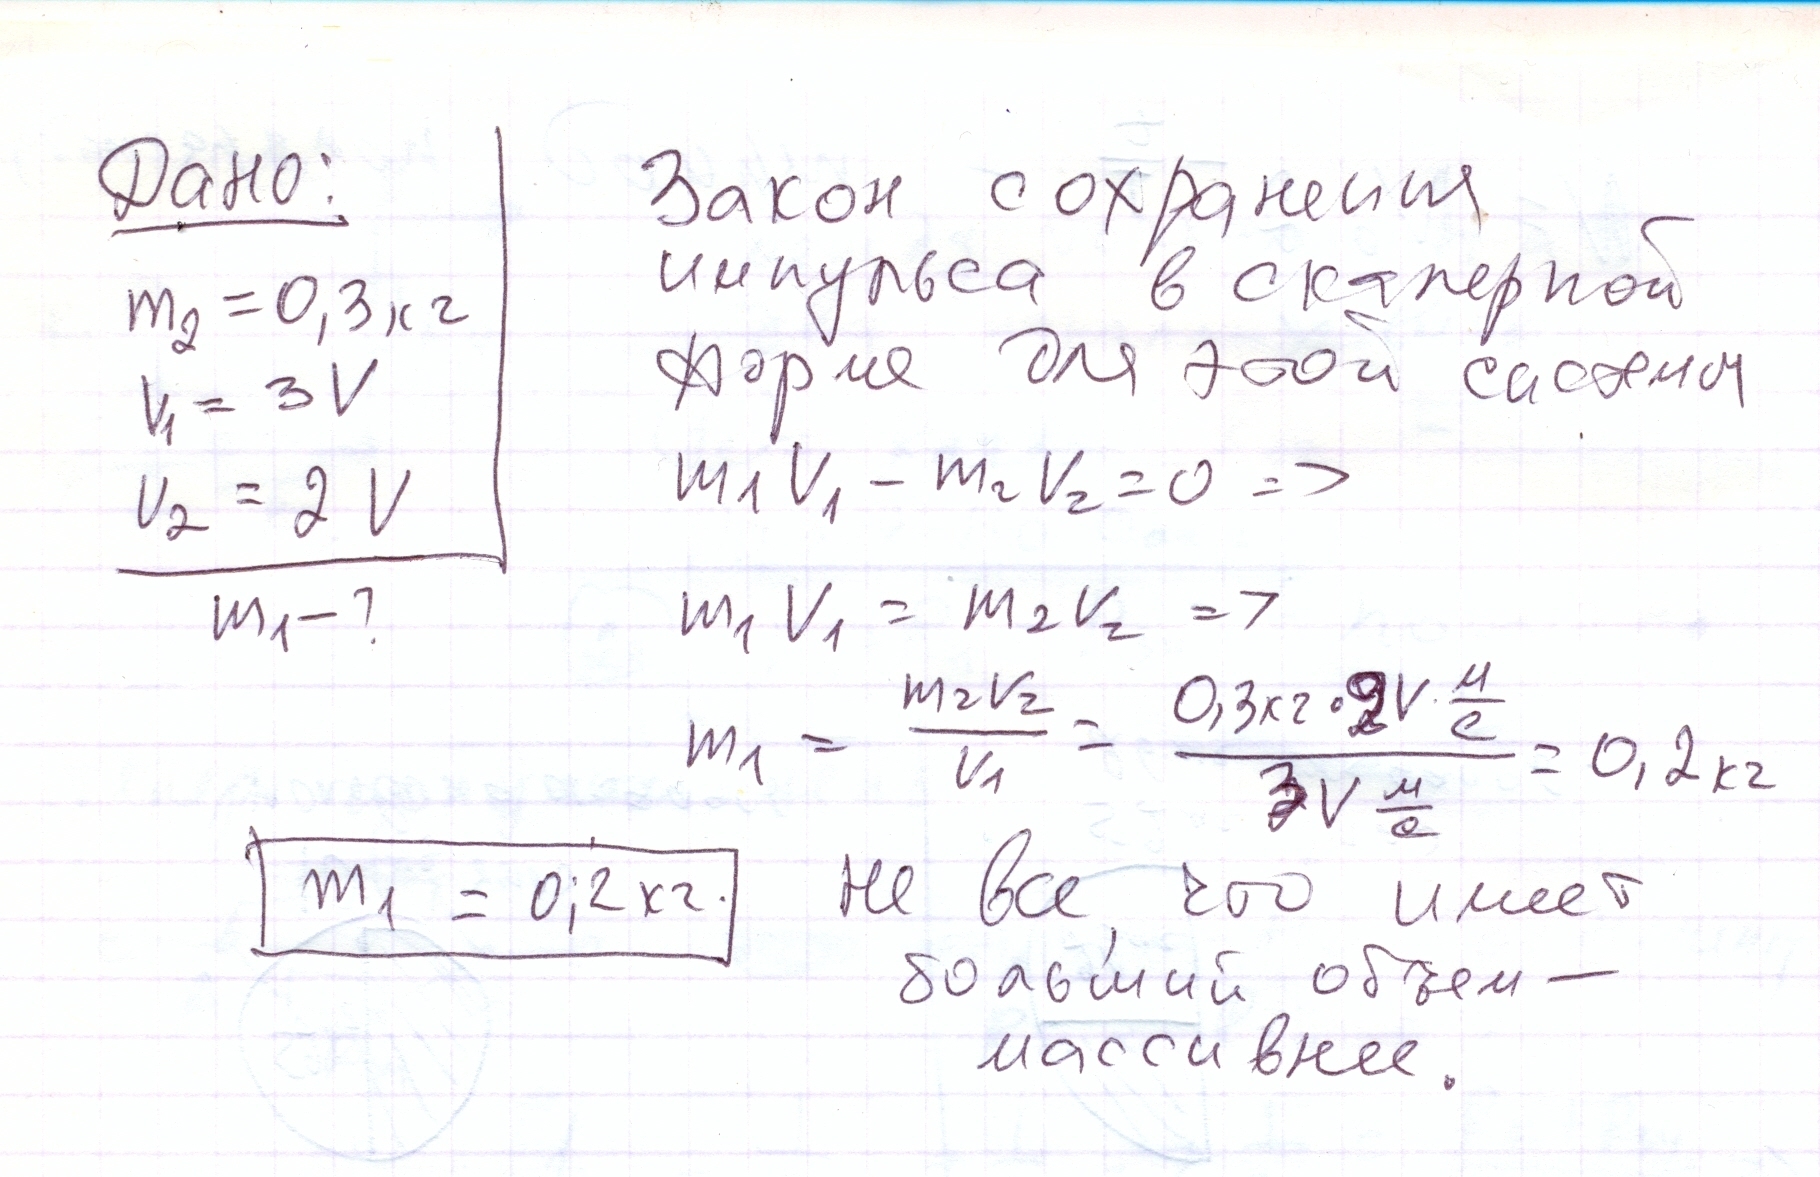 Дано:
m₂ = 0,3 кг
V₁ = 3V
V₂ = 2V
m₁ – ?
Закон сохранения
импульса в скалярной
форме для этой системы
m₁V₁ – m₂V₂ = 0 =>
m₁V₁ = m₂V₂ =>
m₁ = m₂V₂/V₁ = 0,3кг·2V·м/с / 3V м/с = 0,2 кг
m₁ = 0,2 кг.
Не все, что имеет
больший объем –
массивнее.